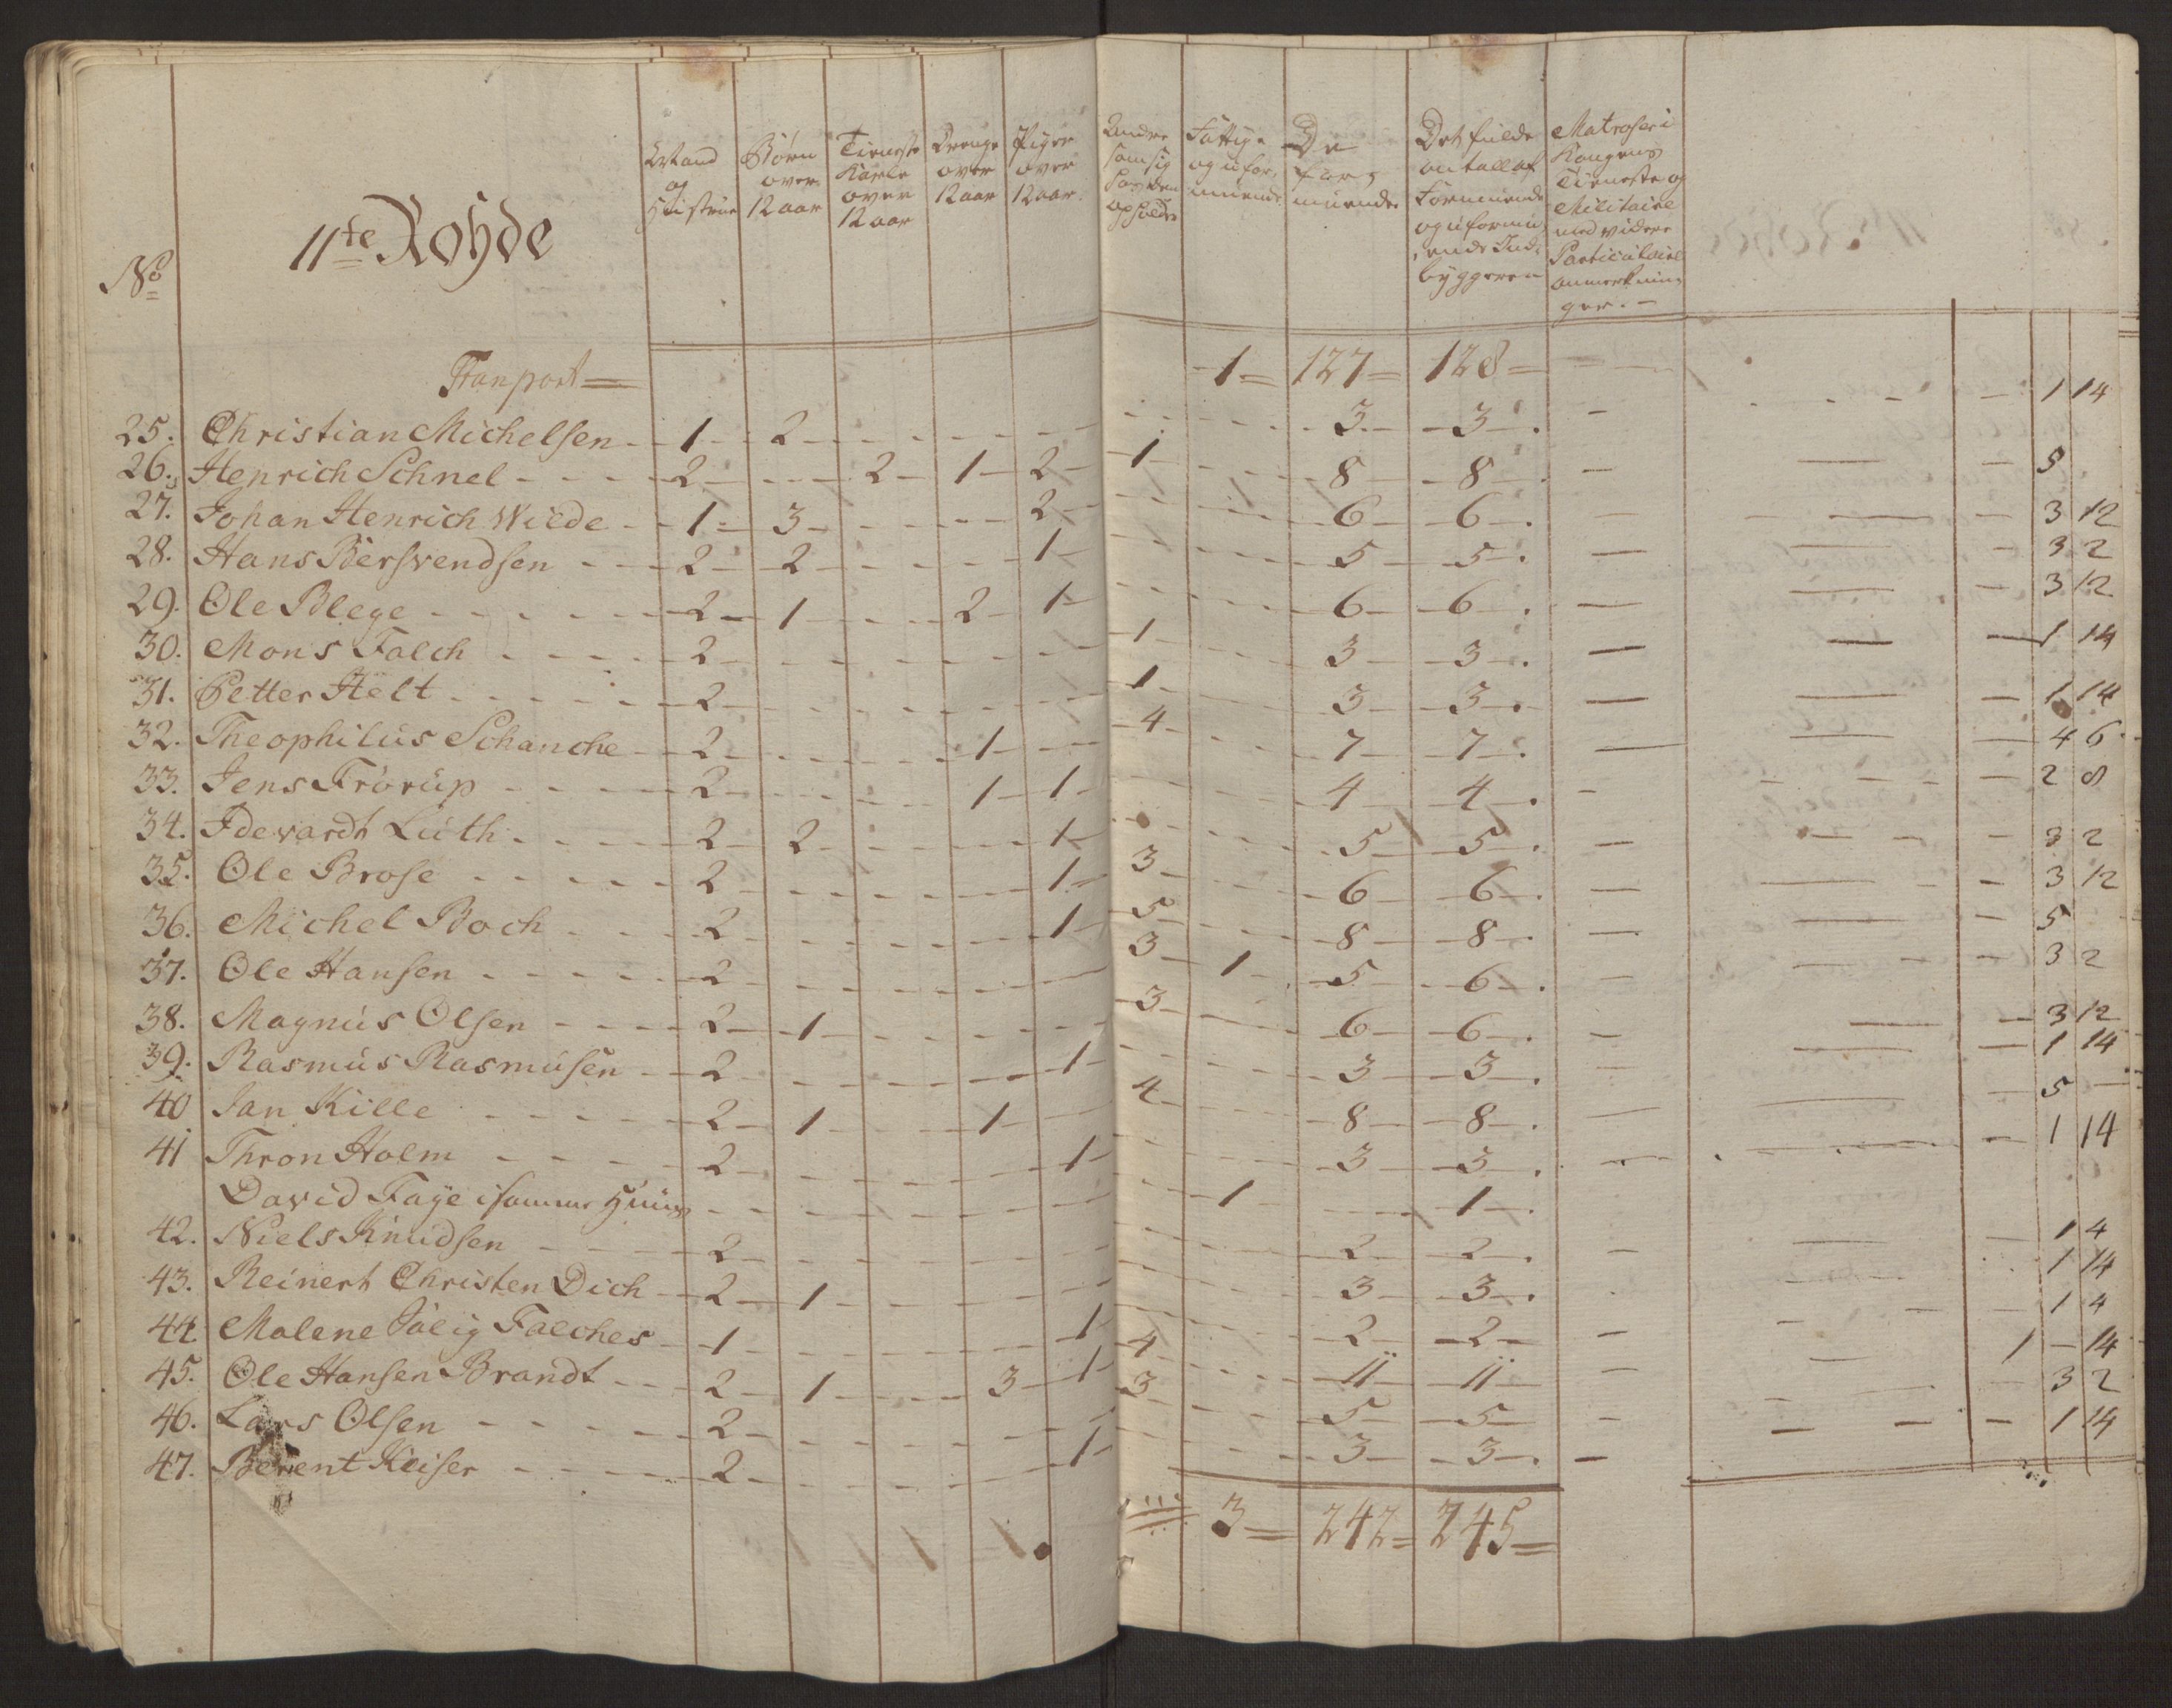 No
11te Rohde
Mand og Hustrue
Børn over 12 aar
Tieneste Karle over 12 aar
Drenge over 12 aar
Piger over 12 aar
Andre som sig
Fattige og ufor, muende
De for, muende
Det fulde antall af Formuende og uformu, ende Ind, byggere
Matroser i Kongens Tieneste og Militaire med videre Particulaire anmerkninger
Tranport 1 127 128
25. Christian Michelsen 1 2 3 3 1 14
26. Henrich Schnel 2 2 1 2 1 8 8 5
27. Johan Henrich Wilde 1 3 2 6 6 3 12
28. Hans Bersvendsen 2 2 1 5 5 3 2
29. Ole Blege 2 1 2 1 6 6 3 12
30. Mons Falch 2 1 3 3 1 14
31. Petter Helt 2 1 3 3 1 14
32. Theophilus Schanche 2 1 4 7 7 4 6
33. Jens Frorup 2 1 1 4 4 2 8
34. Edevardt Luth 2 2 1 5 5 3 2
35. Ole Brose 2 1 3 6 6 3 12
36. Michel Boch 2 1 5 8 8 5
37. Ole Hansen 2 3 1 5 6 3 2
38. Magnus Olsen 2 1 3 6 6 3 12
39. Rasmus Rasmusen 2 1 3 3 1 14
40 Jan Kille 2 1 1 4 8 8 5
41 Thron Holm 2 1 3 3 1 14
David Faye i samme Huus 1 1
42. Niels Knudsen 2 2 2 1 4
43. Reinert Christen Dich 2 1 3 3 1 14
44. Malene Salig Falches 1 1 2 2 1 4
45. Ole Hansen Brandt 2 1 3 1 4 11 11 1 14
46. Lars Olsen 2 3 5 5 3 2
47. Berent Keiser 2 1 3 3 1 14
3 242 245